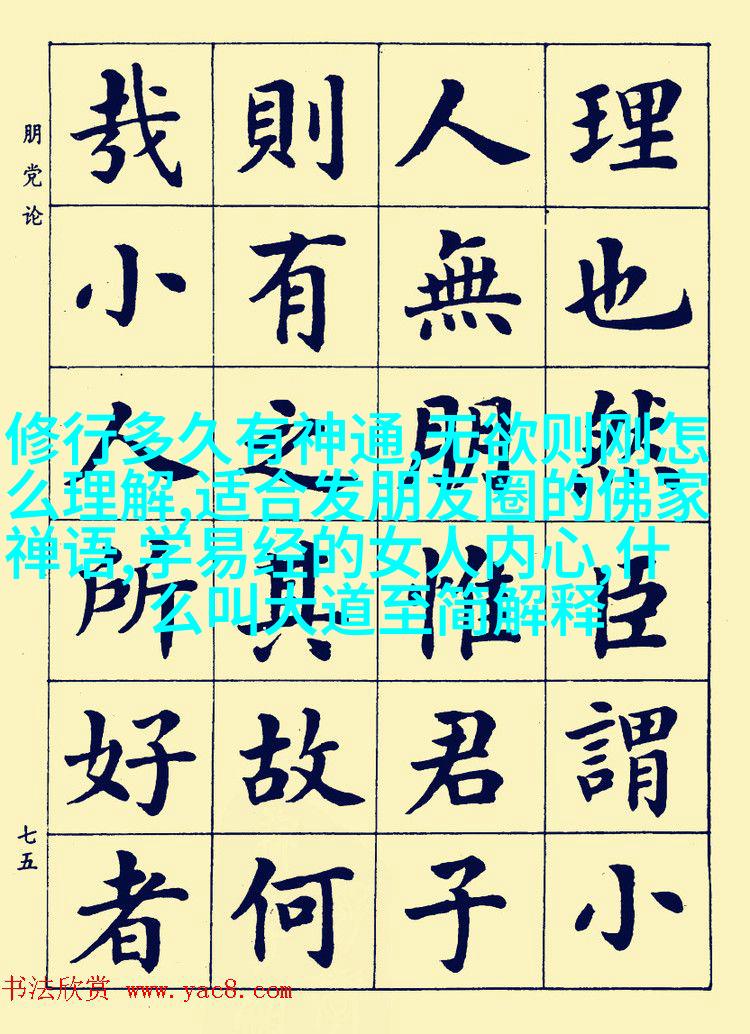 理也然臣謂小
人無朋惟君子
則有之其故何
哉小人所好者
朋党论
七五
修行多久有神通,无欲则刚怎
么理解,适合发朋友圈的佛家
禅语,学易经的女人内心,什
么叫大道至简解释
书法欣赏 www.yac8.com